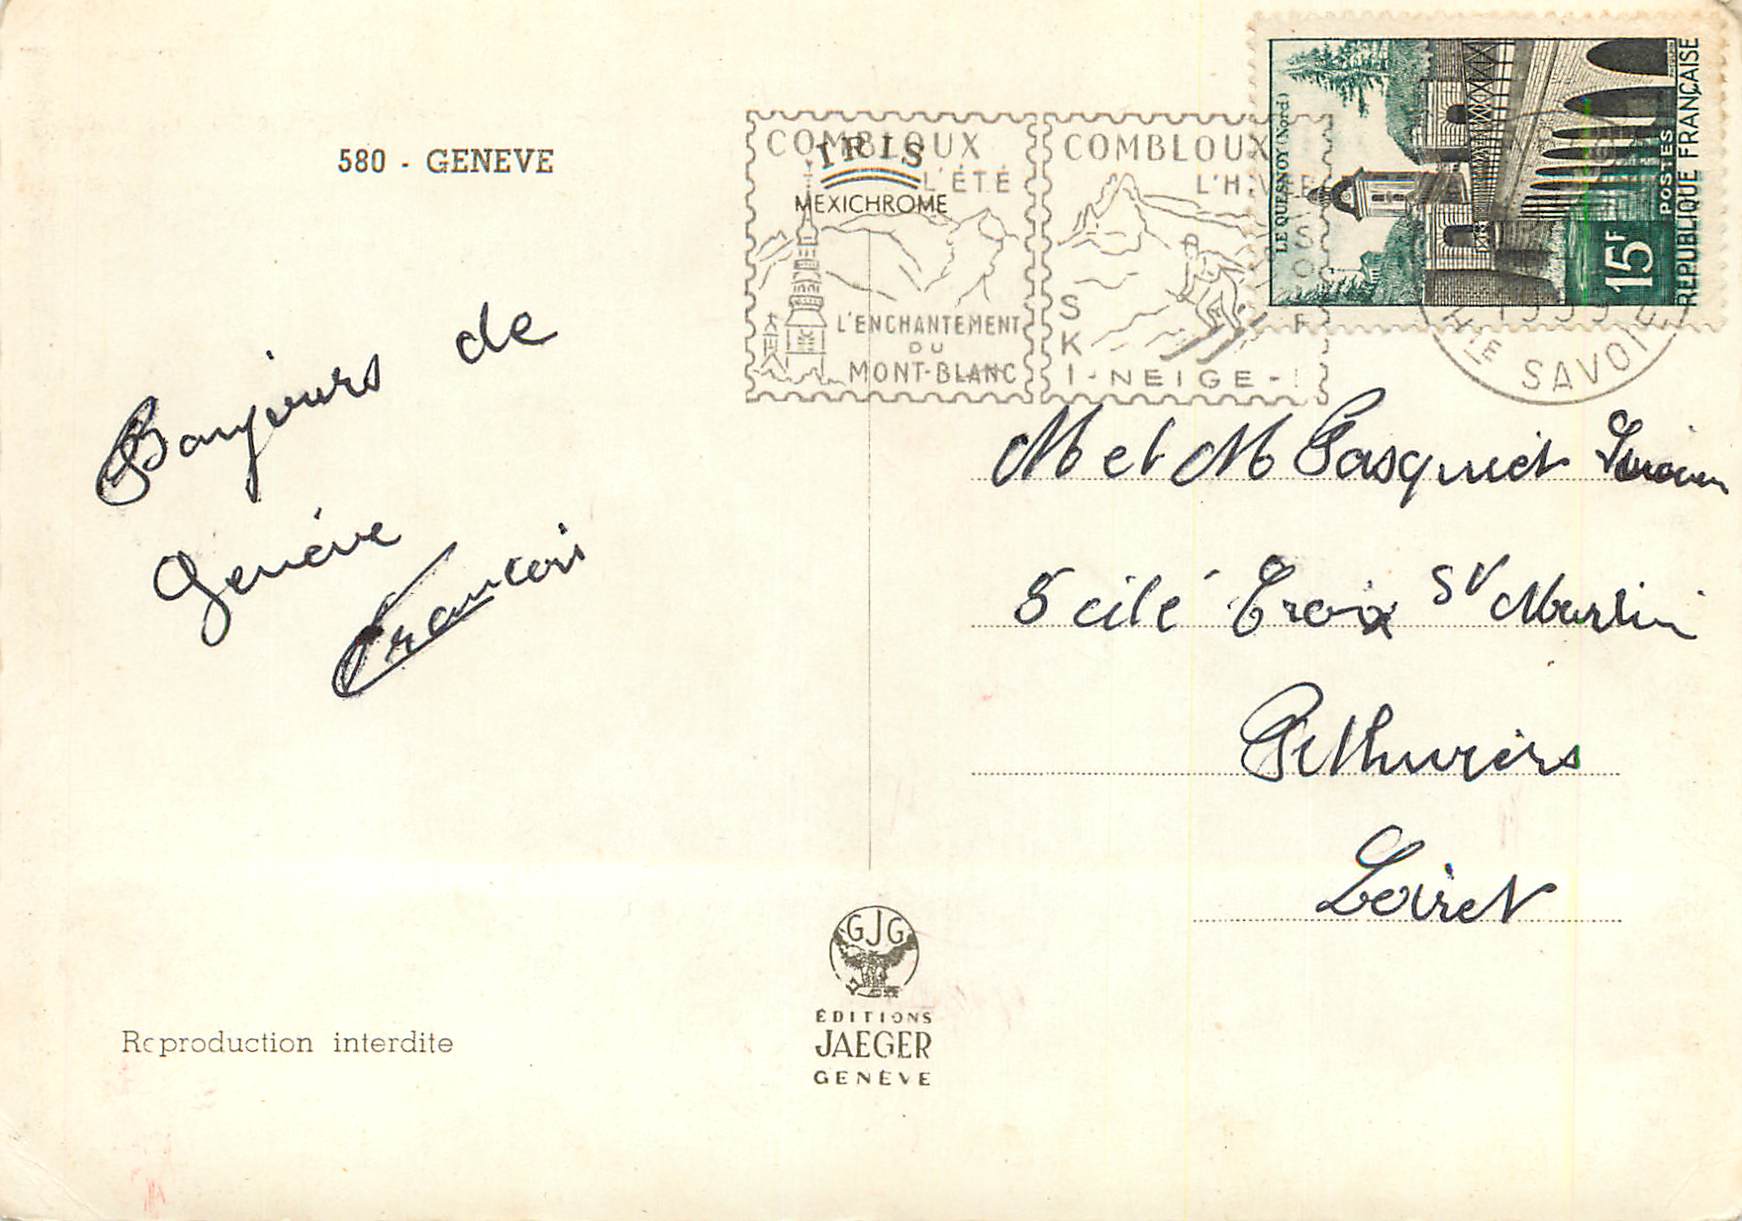 580 - GENEVE
IRIS
MEXICHROME
COMBLOUX
L'ÉTÉ
L'ENCHANTEMENT
DU
MONT-BLANC
COMBLOUX
L'HIVER
SKI - NEIGE -
SOL
LE QUESNOY (Nord)
15F
POSTES
REPUBLIQUE FRANÇAISE
1959
HTE SAVOIE
Bonjours de
Genève
François
M et M Pasquiet
5 cité Croix St Martin
Pithiviers
Loiret
GJG
ÉDITIONS
JAEGER
GENÈVE
Reproduction interdite